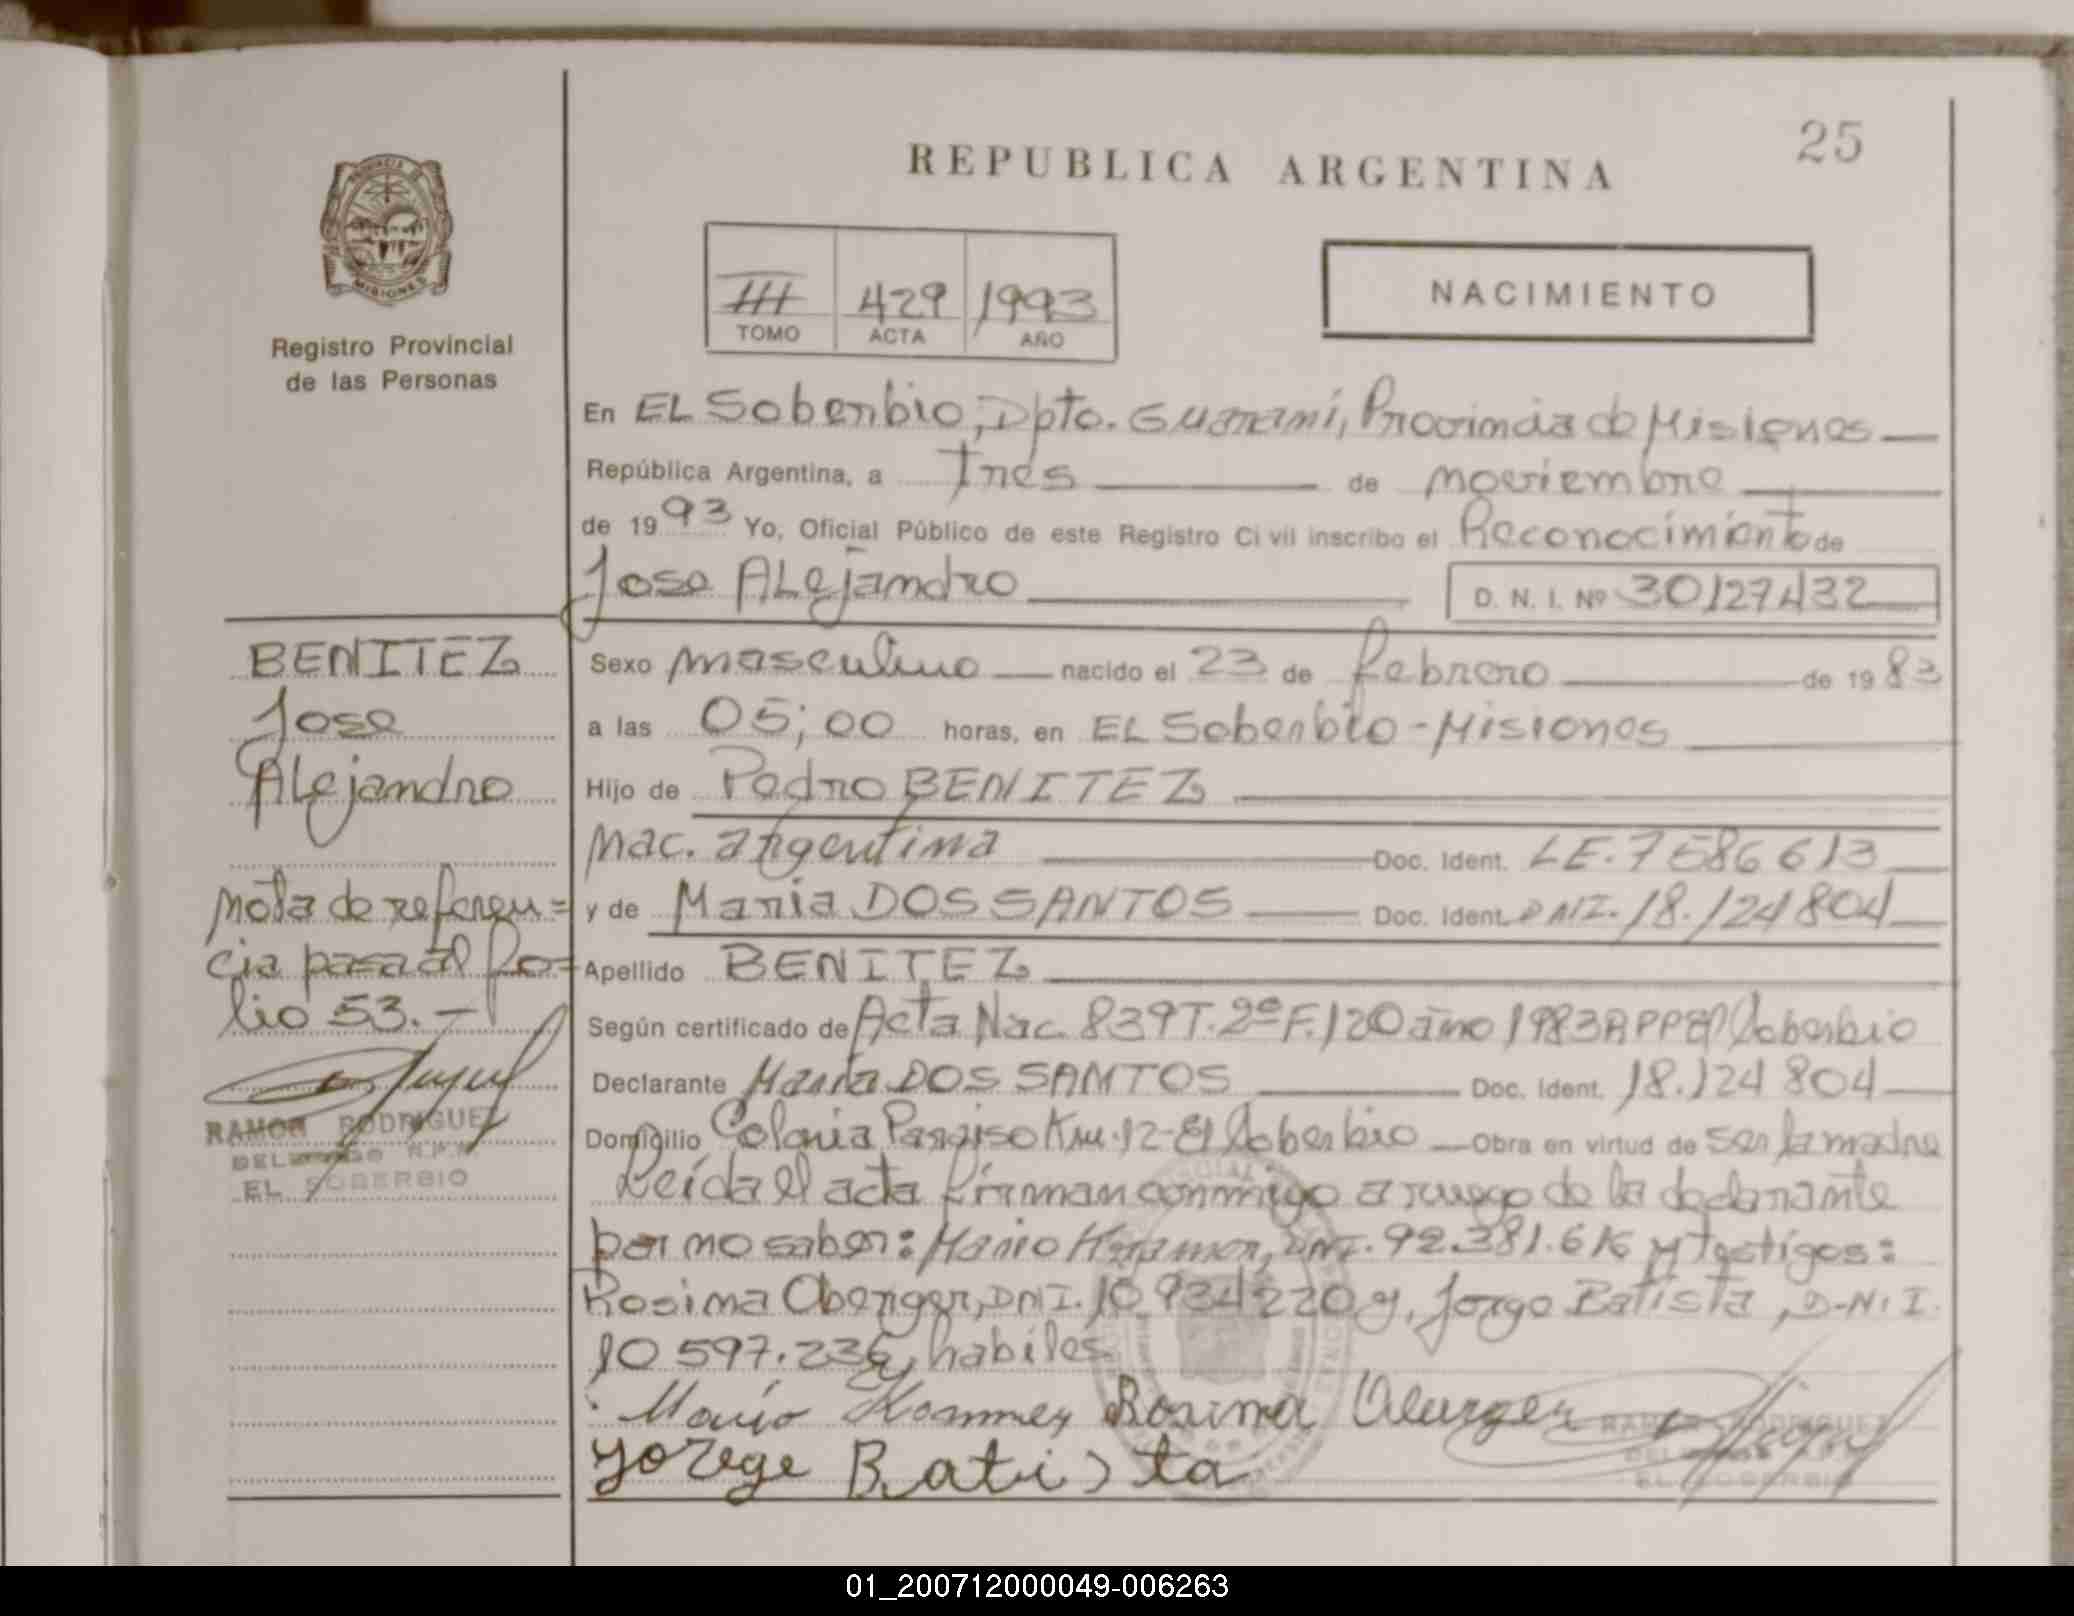 25
REPUBLICA ARGENTINA
PROVINCIA DE
MISIONES
Registro Provincial
de las Personas
III 429 1993
TOMO ACTA AÑO
NACIMIENTO
En EL Soberbio, Dpto. Guarani, Provincia de Misiones
República Argentina, a Tres de noviembre
de 1993 Yo, Oficial Público de este Registro Civil inscribo el Reconocimiento de
Jose ALejandro D. N. I. Nº 30127432
Sexo masculino nacido el 23 de febrero de 1983
a las 05;00 horas, en EL Soberbio - Misiones
Hijo de Pedro BENITEZ
Nac. argentina Doc. Ident. LE. 7586613
y de Maria DOS SANTOS Doc. Ident. DNI. 18.124804
Apellido BENITEZ
Según certificado de Acta Nac. 839 T. 2º F. 120 año 1983 RPP El Soberbio
Declarante Maria DOS SANTOS Doc. Ident. 18.124 804
Domicilio Colonia Paraiso Km. 12 - El Soberbio Obra en virtud de ser la madre
Leída el acta firman conmigo a ruego de la declarante
por no saber: Mario DNI. 92.381. y testigos:
Rosina DNI. 10 934220 y, Jorge Batista, D-N. I.
10 597.236, habiles
Mario Rosina
Jorege Batista
RAMON RODRIGUEZ
EL SOBERBIO
BENITEZ
Jose
ALejandro
Nota de referen=
cia pasa al fo=
lio 53.-
RAMON RODRIGUEZ
DELEGADO R.P.P.
EL SOBERBIO
01_200712000049-006263